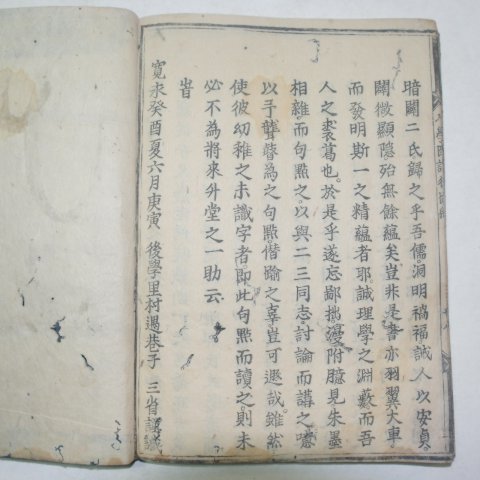 暗闢二氏歸之乎吾儒洞明禍福誠人以安貞
闡微顯隱殆無餘蘊矣豈非是書亦羽翼大車
而發明斯一之精蘊者耶誠理學之淵藪而吾
人之裘葛也於是乎遂忘鄙拙漫附臆見朱墨
相雜而句點之以與二三同志討論而講之噫
以予聾瞽為之句點僭踰之辜豈可遯哉雖然
使彼幼稚之未識字者即此句點而讀之則未
必不為將來升堂之一助云
旹
寬永癸酉夏六月庚寅 後學里村遇巷子 三省謹識